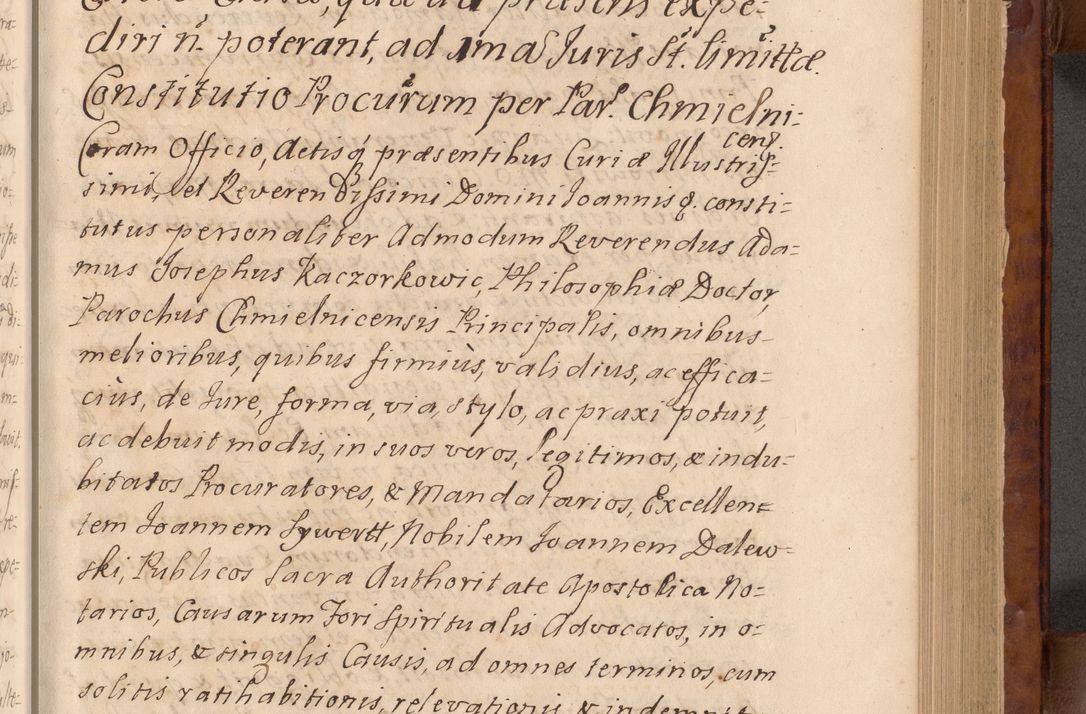 diri n̄ poterant, ad 1ma Juris St. limittæ.
Constitutio Procurum per Par. Chmielni=
cens.
Coram Officio, Actisq́ præsentibus Curiæ Illustris=
simi, et Reverendissimi Domini Joannis q. consti=
tutus personaliter Admodum Reverendus Ada=
mus Josephus Kaczorkowic, Philosophiæ Doctor,
Parochus Chmielnicensis Principalis, omnibus
melioribus, quibus firmiùs, validius, ac effica=
ciùs, de Jure, forma, via, stylo, ac praxi potuit,
ac debuit modis, in suos veros, legitimos, & indu=
bitatos Procuratores, & Mandatarios, Excellen=
tem Joannem Sywertt, Nobilem Joannem Dalew=
ski, Publicos Sacra Authoritate Apostolica No=
tarios, Causarum Fori Spiritualis Advocatos, in o=
mnibus, & singulis Causis, ad omnes terminos, cum
solitis ratihabitionis, relevationis & indemnit